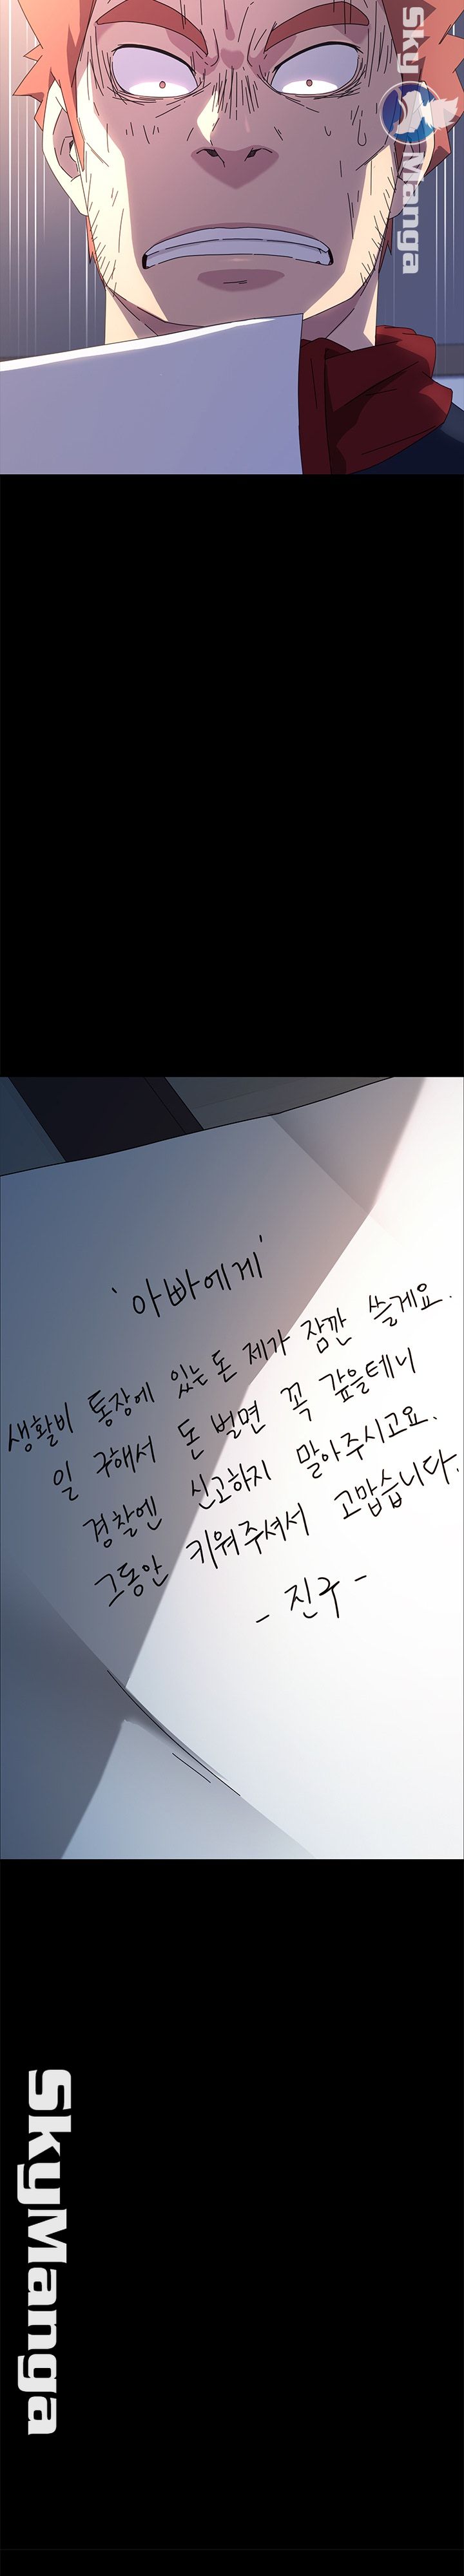 Sky Manga
'아빠에게'
생활비 통장에 있는돈 제가 잠깐 쓸게요.
일 구해서 돈 벌면 꼭 갚을테니
경찰엔 신고하지 말아주시고요.
그동안 키워주셔서 고맙습니다.
- 진구 -
SkyManga